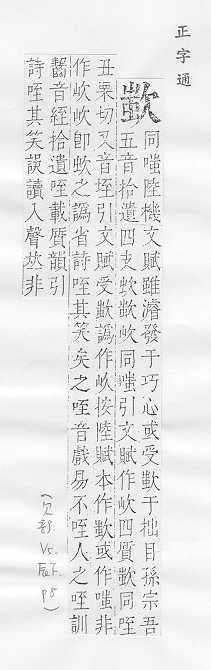 正字通
㰞
同嗤陸機文賦雖濬發于巧心或受㰞于拙目孫宗吾
五音拾遺四支㰞同嗤引文賦作四質㰞同咥
丑栗切又音垤引文賦受㰞譌作按陸賦本作㰞或作嗤非
作卽之譌省詩咥其笑矣之咥音戲易不咥人之咥訓
齧音絰拾遺咥載質韻引
詩咥其笑誤讀入聲𠀤非
(欠部. V5. 辰下. p8)